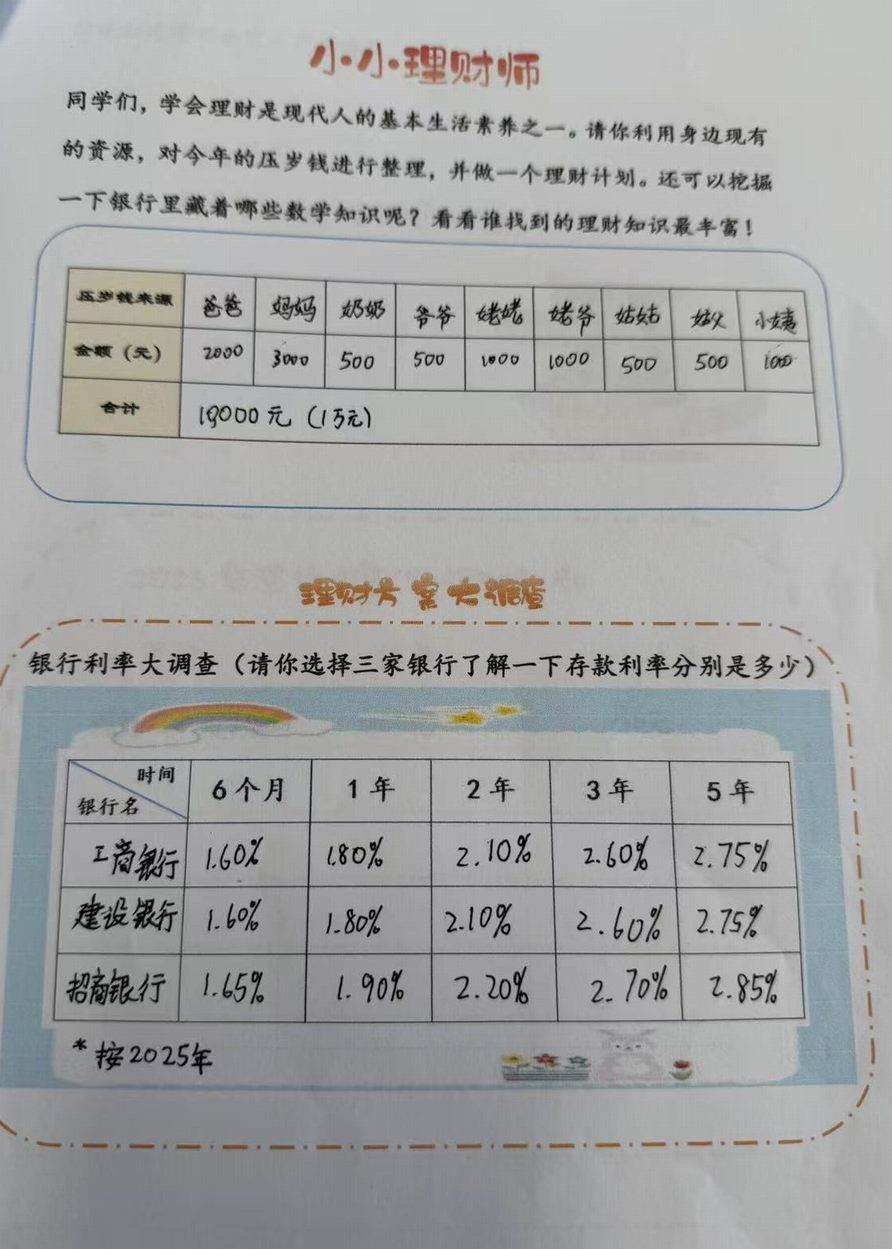 小小理财师
同学们，学会理财是现代人的基本生活素养之一。请你利用身边现有
的资源，对今年的压岁钱进行整理，并做一个理财计划。还可以挖掘
一下银行里藏着哪些数学知识呢？看看谁找到的理财知识最丰富！
压岁钱来源 爸爸 妈妈 奶奶 爷爷 姥姥 姥爷 姑姑 姑父 小姨
金额（元） 2000 3000 500 500 1000 1000 500 500 1000
合计 10000元（1万元）
理财方案大调查
银行利率大调查（请你选择三家银行了解一下存款利率分别是多少）
时间
银行名 6个月 1年 2年 3年 5年
工商银行 1.60% 1.80% 2.10% 2.60% 2.75%
建设银行 1.60% 1.80% 2.10% 2.60% 2.75%
招商银行 1.65% 1.90% 2.20% 2.70% 2.85%
*按2025年